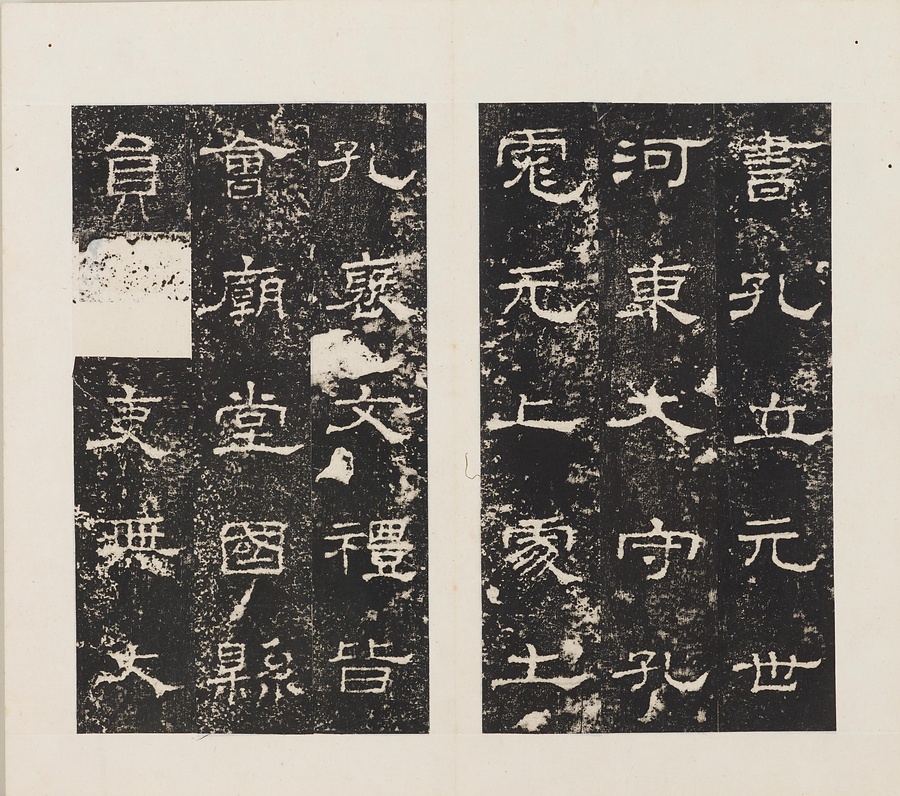 書孔立元世
河東大守孔
彪元上處士
孔褒文禮皆
會廟堂國縣
員吏無大